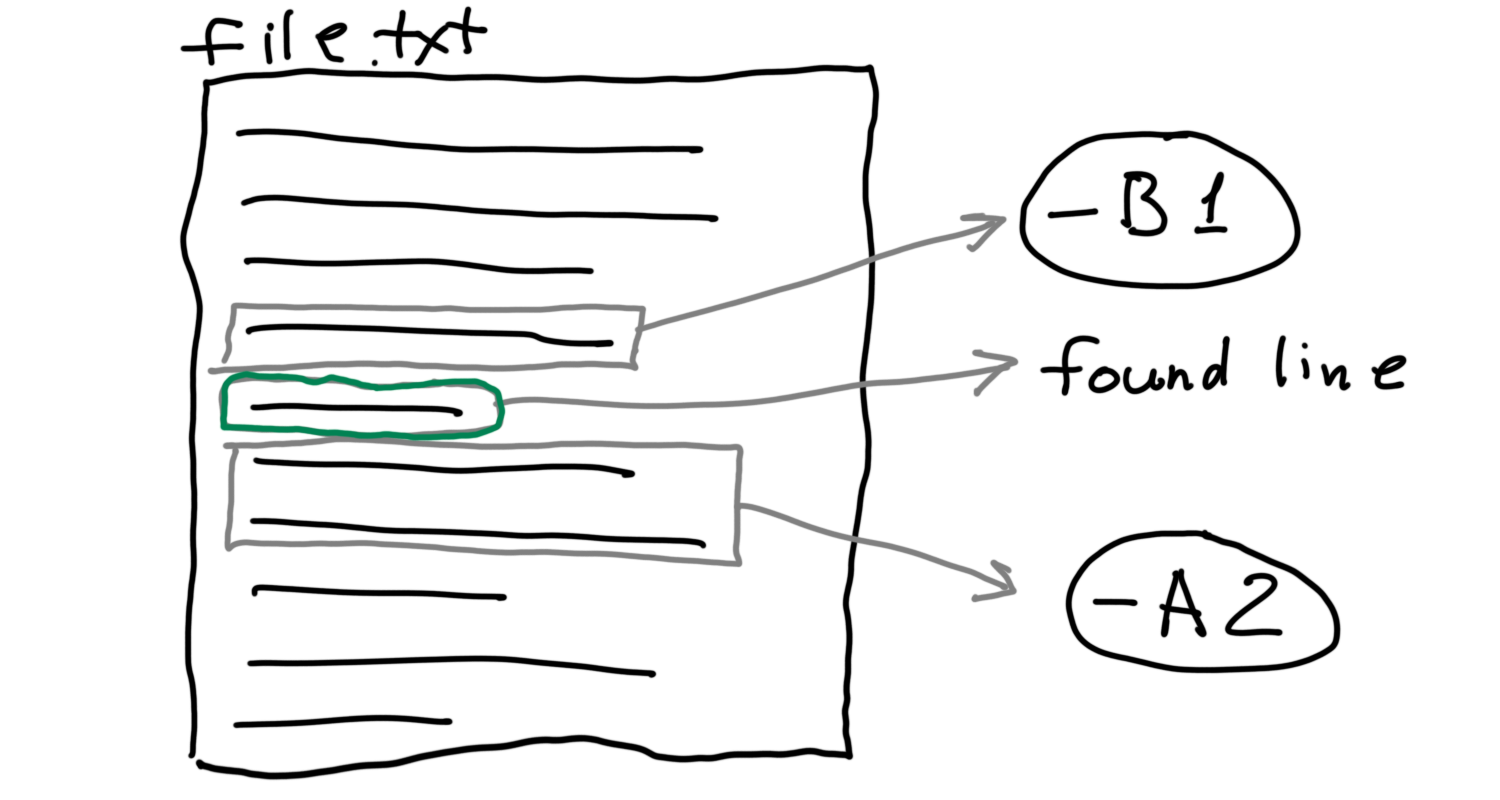 file.txt
-B1
found line
-A2